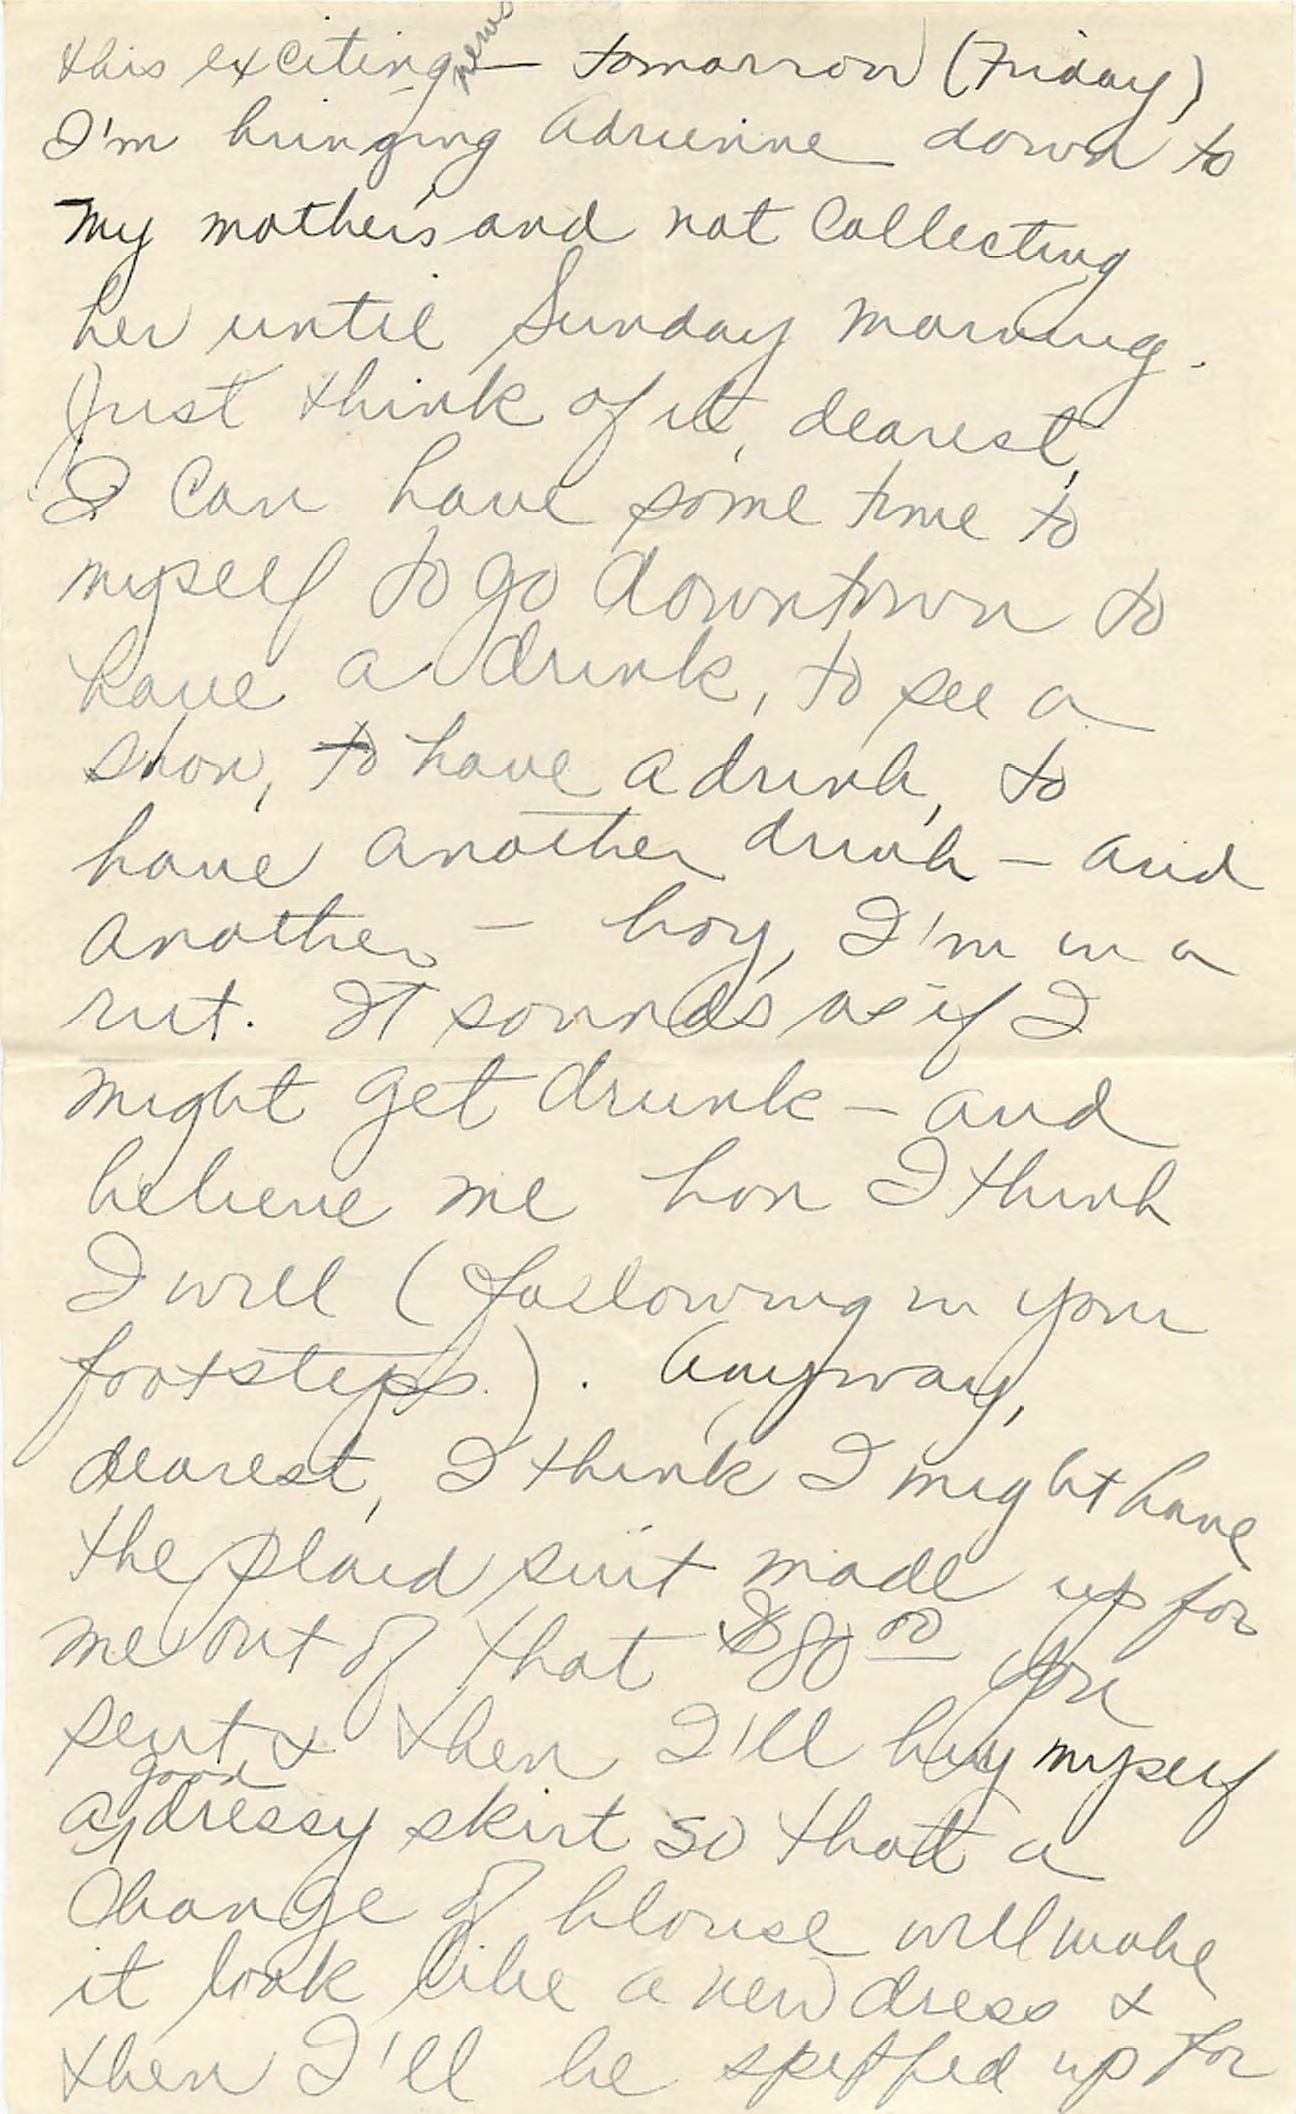 this exciting news — tomorrow (Friday)
I'm bringing Adrienne down to
my mother's and not collecting
her until Sunday morning.
Just think of it, dearest,
I can have some time to
myself to go downtown to
have a drink, to see a
show, to have a drink, to
have another drink — and
another — boy, I'm in a
rut. It sounds as if I
might get drunk — and
believe me hon I think
I will (following in your
footsteps.). Anyway,
dearest, I think I might have
the plaid suit made up for
me out of that $80.00 you
sent & then I'll buy myself
a good dressy skirt so that a
change of blouse will make
it look like a new dress &
then I'll be up for